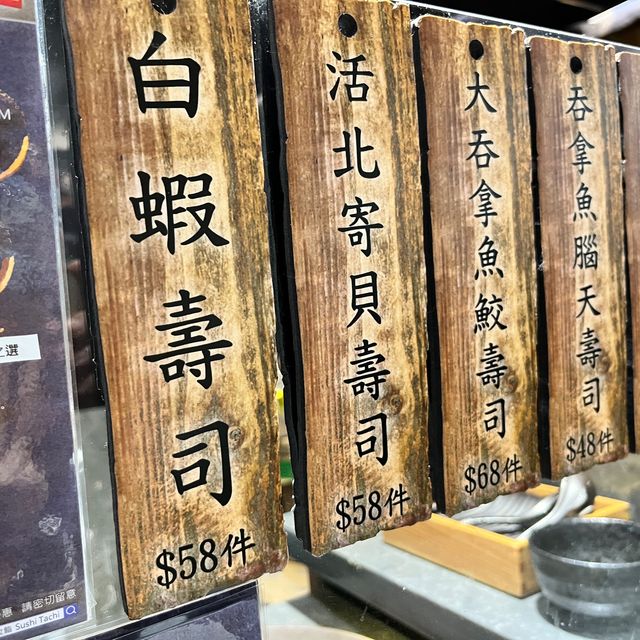 白蝦壽司
$58件
活北寄貝壽司
$58件
大吞拿魚鮫壽司
$68件
吞拿魚腦天壽司
$48件
M
之選
惠 請密切留意
Sushi Tachi